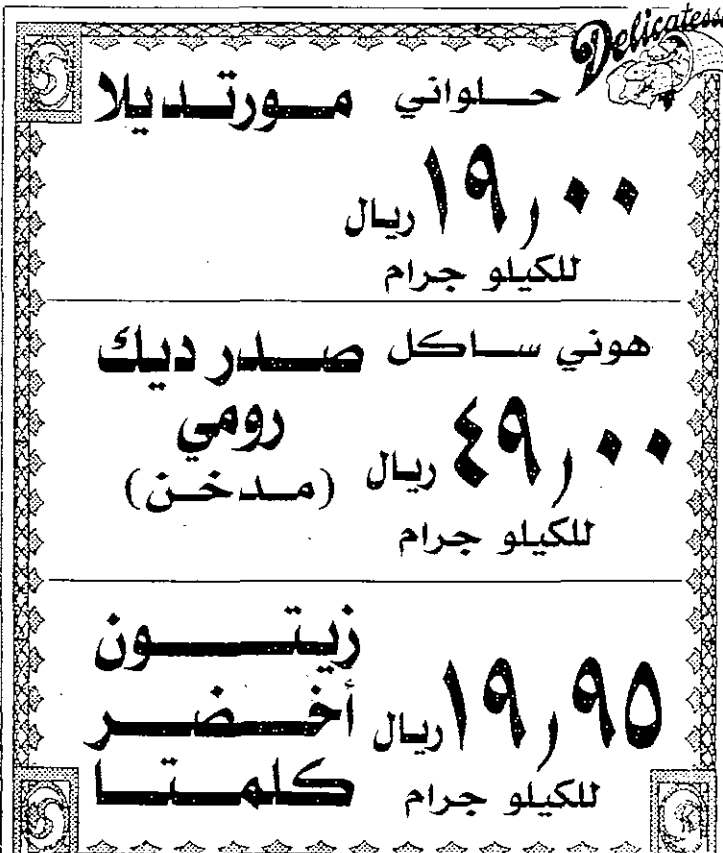 Delicatess
حلواني مورتديلا
١٩,٠٠ ريال
للكيلو جرام
هوني ساكل صدر ديك
رومي
(مدخن)
٤٩,٠٠ ريال
للكيلو جرام
زيتون
أخضر
كلمتا
١٩,٩٥ ريال
للكيلو جرام